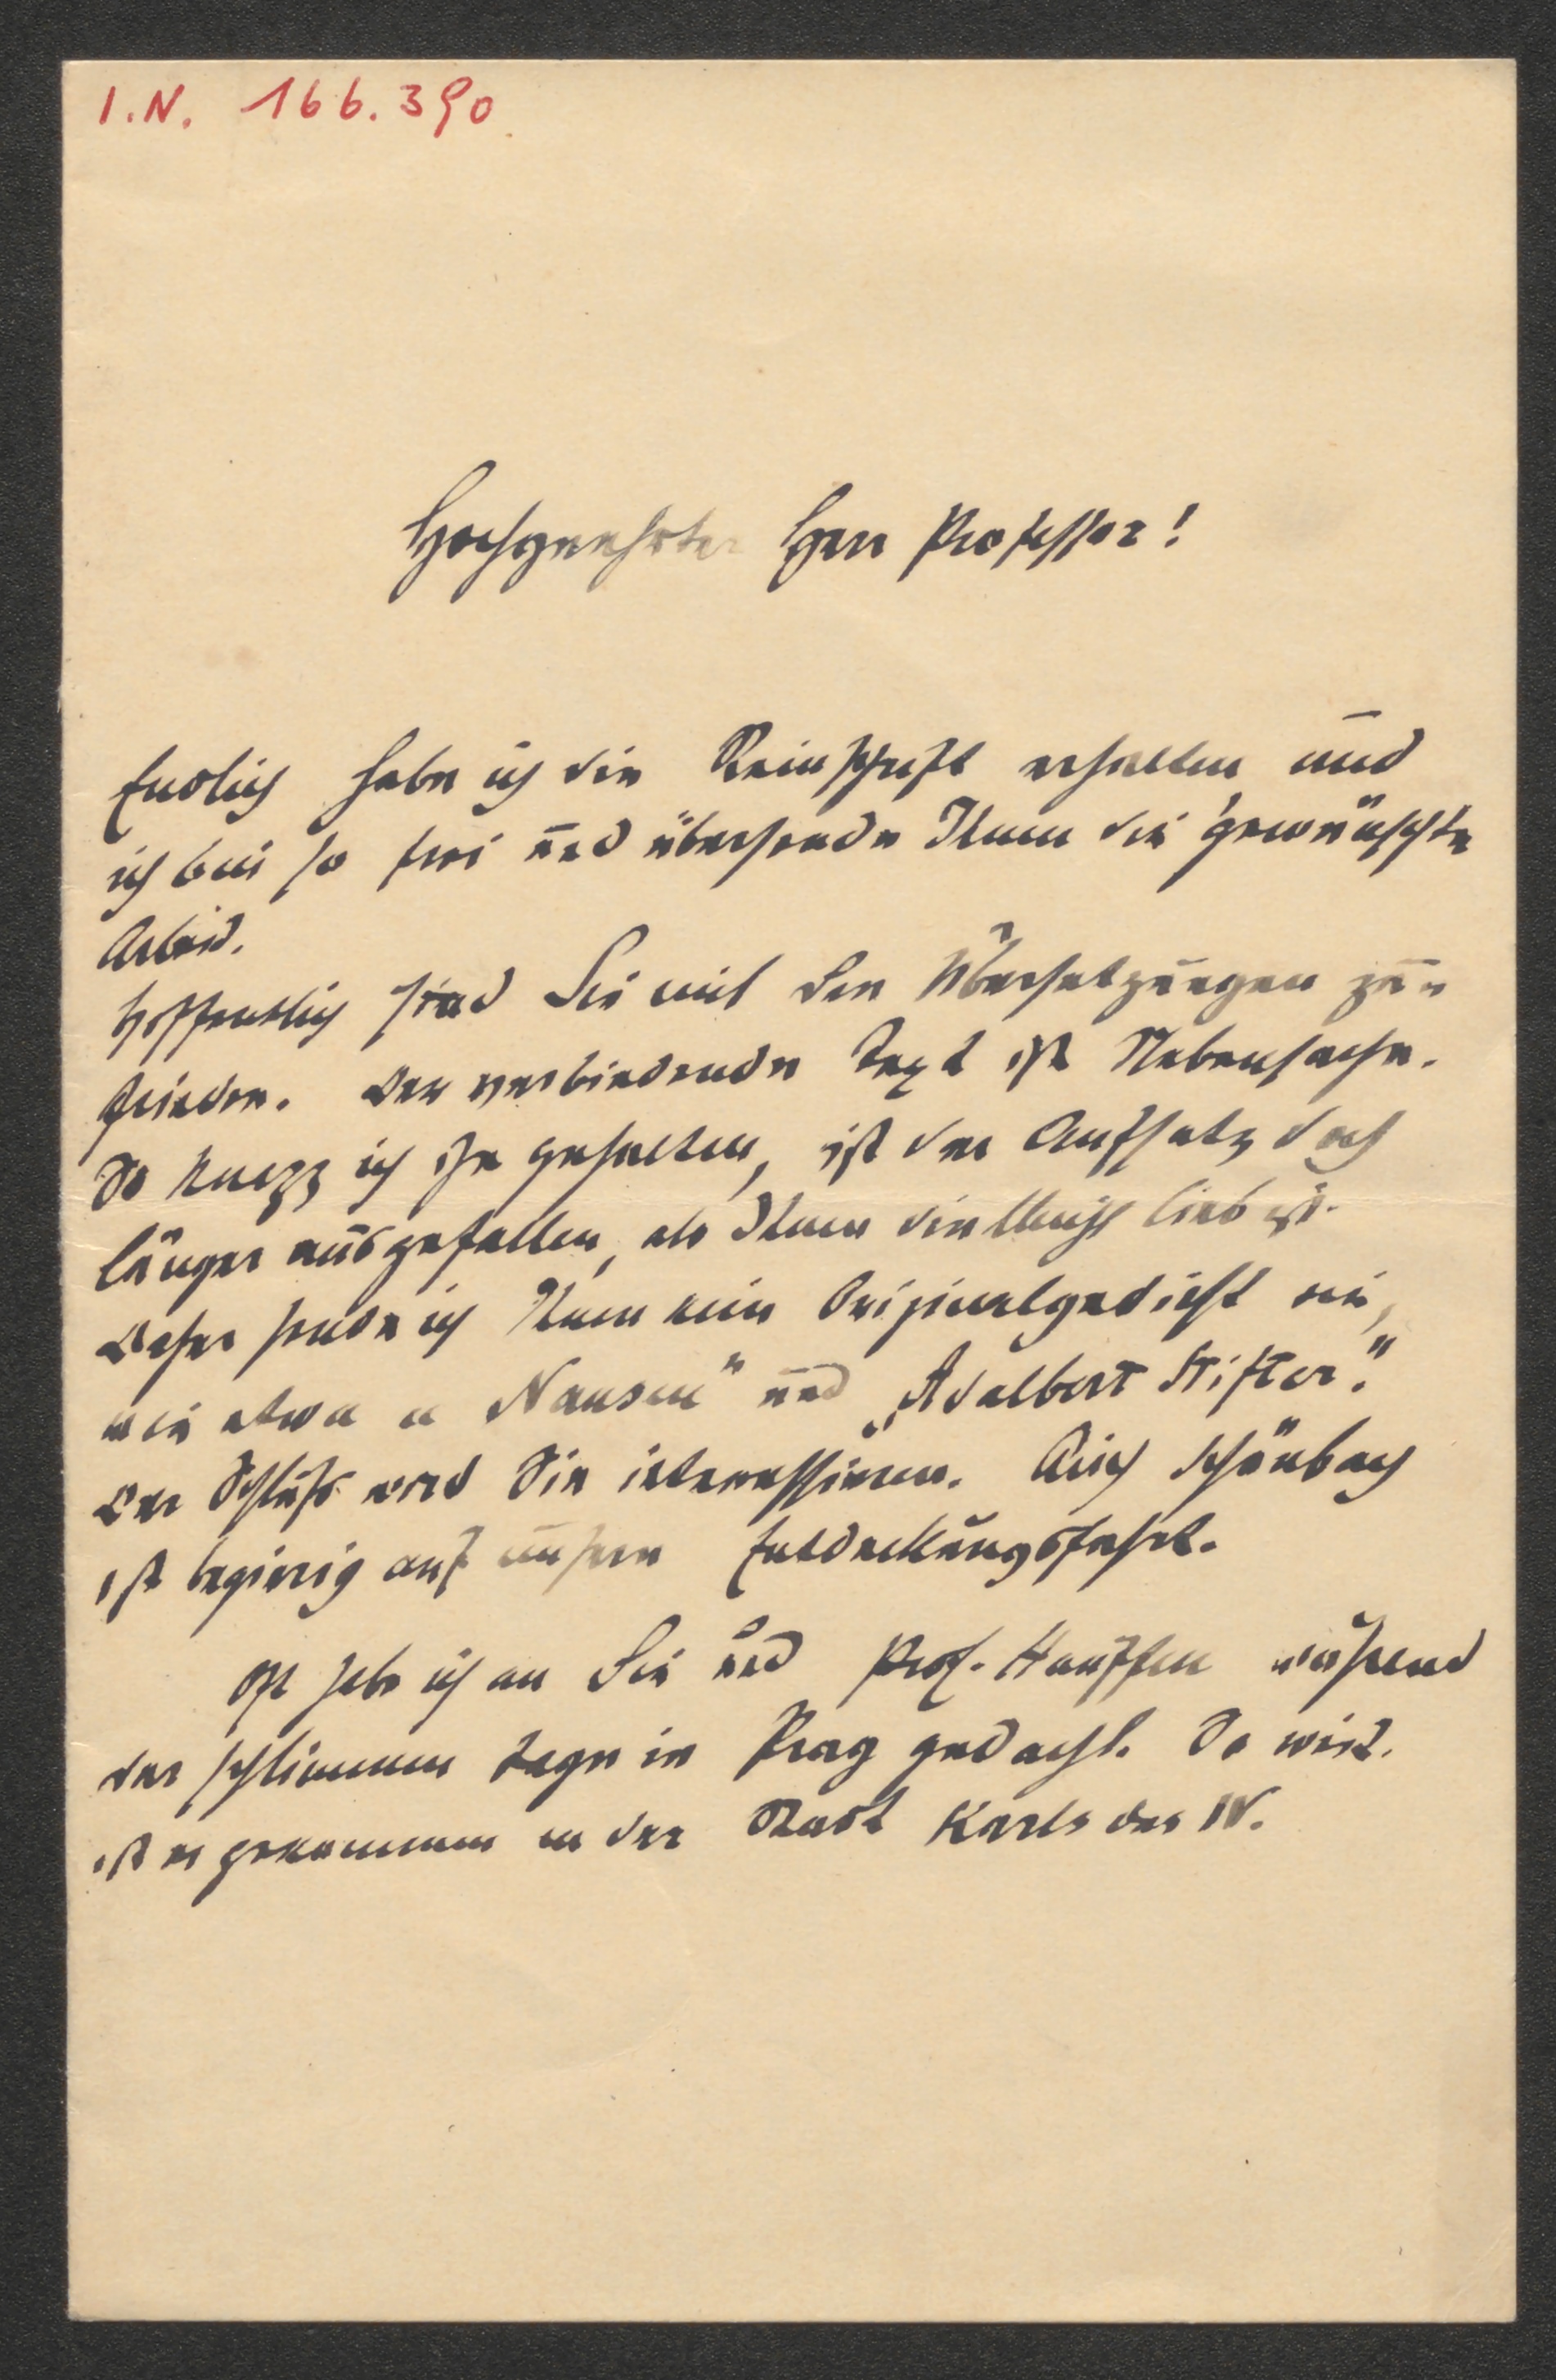 I.N. 166.390
Hochgeehrter Herr Professor!
Endlich habe ich die Reinschrift erhalten und
ich bin so frei und übersende Ihnen die gewünschte
Arbeit.
Hoffentlich sind Sie mit den Übersetzungen zu-
frieden. Der verbindende Text ist Nebensache.
So kurz ich ihn gehalten, ist der Aufsatz doch
länger ausgefallen, als Ihnen vielleicht lieb ist.
Daher sende ich Ihnen kein Originalgedicht ein,
wie etwa „Nansen" und „Adalbert Stifter".
Der Schluß wird Sie interessieren. Auch Schönbach
ist begierig auf unsere Entdeckungsfahrt.
Oft habe ich an Sie und Prof. Hauffen während
der schlimmen Tage in Prag gedacht. So weit
ist es gekommen in der Stadt Karls des IV.